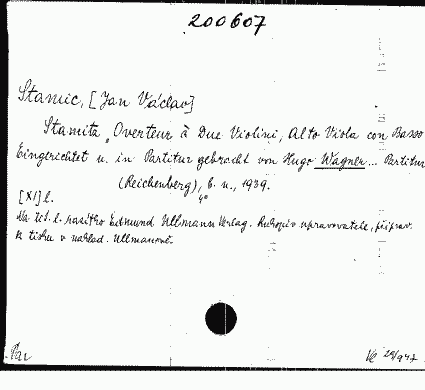 200607
Stamic, [Jan Václav]
Stamita „Overteur à Due Violini, Alto Viola con Basso
Eingerichtet u. in Partitur gebracht von Hugo Wagner... Partitur
(Reichenberg), b. n., 1939.
[XI] l. 4°
Na tit. l. razítko Edmund Ullmann Verlag. Rukopis upravovatele, připrav.
k tisku v naklad. Ullmannově.
Par